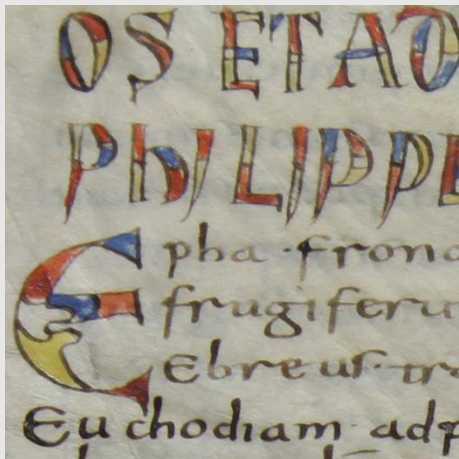 OS ET AD
PHILIPPE
Epha·frono
frugiferu
Ebreus·tra
Euchodiam adp